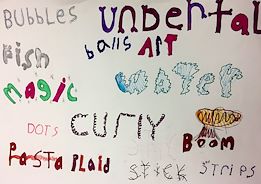 BUBBLES UNDENTAL
Fish balls ART
MAGIC WATER
DOTS CURLY BOOM
PASTA PLAID STICK STRIPS